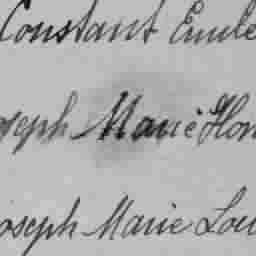 Constant Emile
oseph Marie Hon
oseph Marie Lou